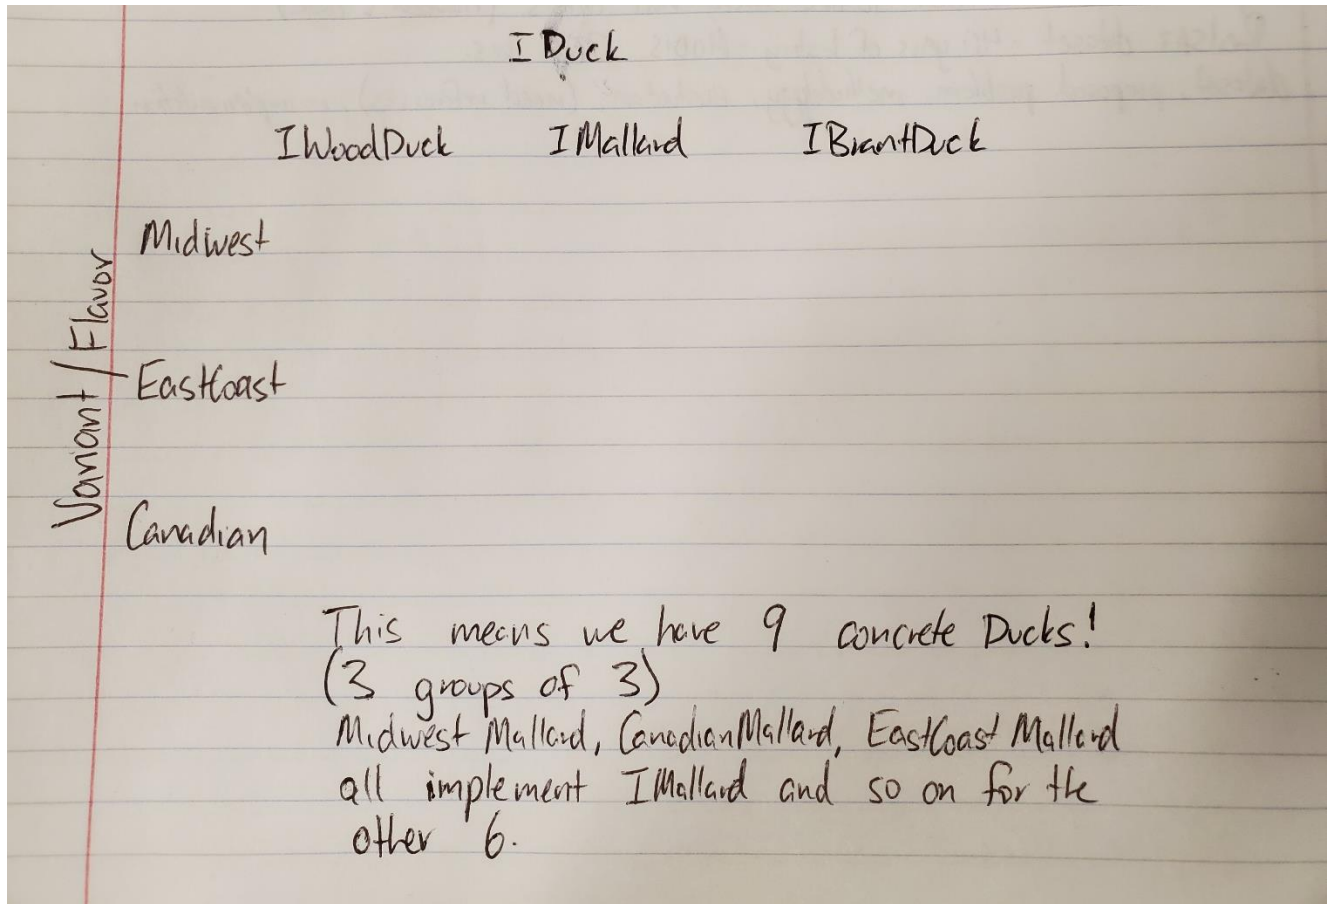 IDuck
IWoodDuck IMallard IBrantDuck
Midwest
Variant / Flavor
EastCoast
Canadian
This means we have 9 concrete Ducks!
(3 groups of 3)
Midwest Mallard, CanadianMallard, EastCoast Mallard
all implement IMallard and so on for the
other 6.